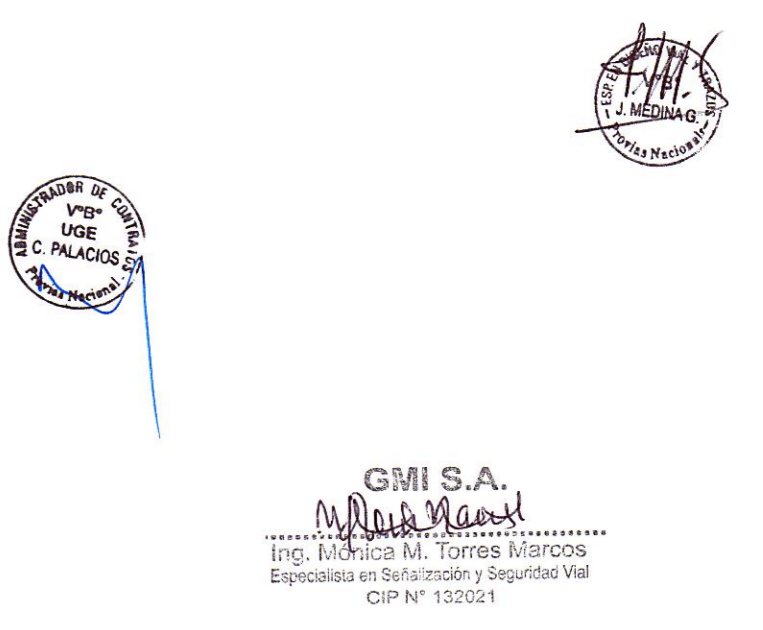 ESP. EN DISEÑO VIAL Y TRAZOS
V°B°
J. MEDINA G.
Provias Nacional
ADMINISTRADOR DE CONTRATOS
V°B°
UGE
C. PALACIOS
Provias Nacional
GMI S.A.
Ing. Mónica M. Torres Marcos
Especialista en Señalización y Seguridad Vial
CIP N° 132021